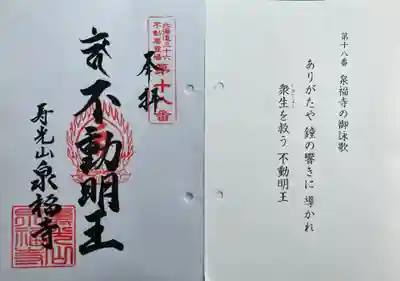 第十八番 泉福寺の御詠歌
ありがたや 鐘の響きに 導かれ
衆生を救う 不動明王
北海道三十六
不動尊霊場
第十八番
奉拝
不動明王
寿光山泉福寺